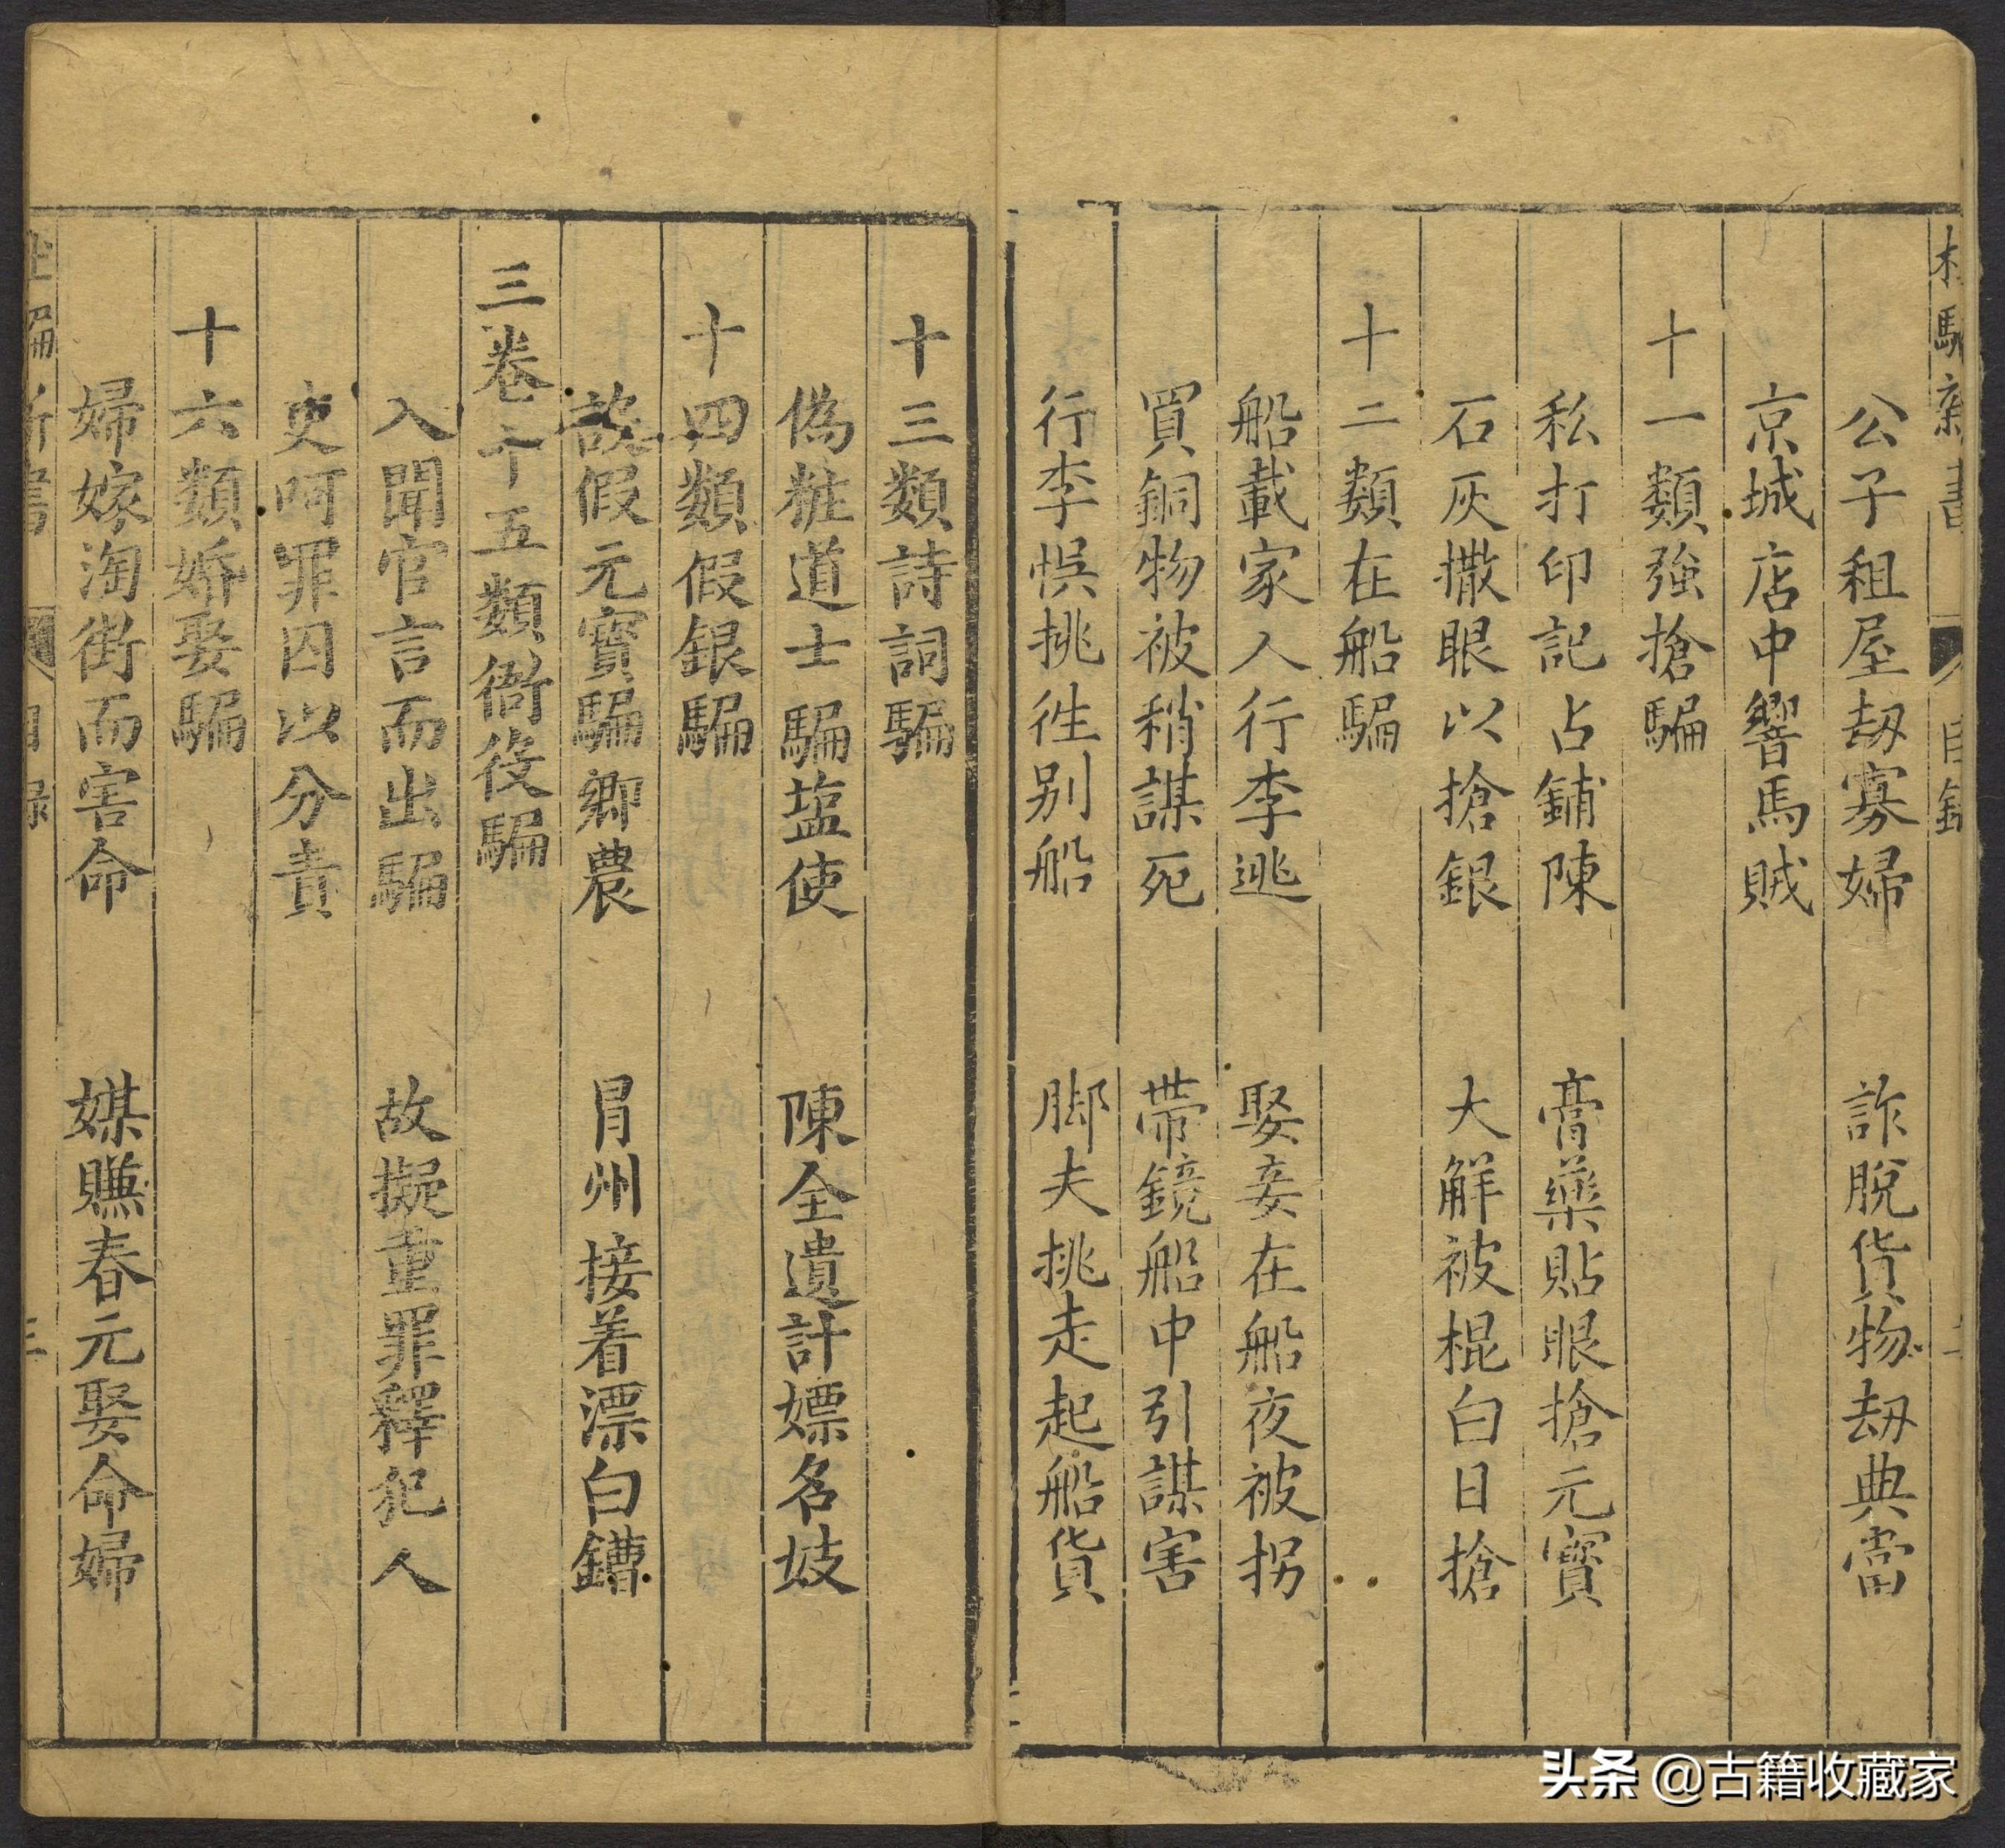 杜騙新書 目錄 二
公子租屋劫寡婦 詐脫貨物劫典當
京城店中響馬賊
十一類強搶騙
私打印記占鋪陳 膏藥貼眼搶元寶
石灰撒眼以搶銀 大解被棍白日搶
十二類在船騙
船載家人行李逃 娶妾在船夜被拐
買銅物被稍謀死 帶鏡船中引謀害
行李悞挑徃别船 脚夫挑走起船貨
十三類詩詞騙
偽粧道士騙塩使 陳全遺計嫖名妓
十四類假銀騙
設假元寶騙鄉農 冐州接着漂白鏪
三卷十五類衙役騙
入聞官言而出騙 故擬重罪釋犯人
吏呵罪囚以分責
十六類婚娶騙
婦嫁淘街而害命 媒賺春元娶命婦
杜騙新書 目錄 三
头条 @古籍收藏家